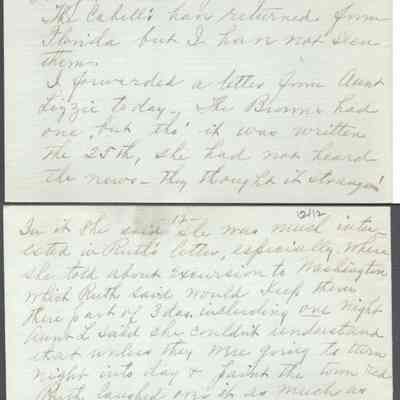 The Cahill's have returned from
Florida but I have not seen
them.
I forwarded a letter from Aunt
Lizzie today - The Browns had
one, but tho' it was written
the 25th, she had not heard
the news - they thought it strange!
12- 12/12
In it she said she was much inter-
ested in Ruth's letter, especially where
she told about excursion to Washington
which Ruth said would keep them
there part of 3 das. including one night
Aunt L said she couldn't understand
that unless they were going to turn
night into day & paint the town red
Ruth laughed over it as much as